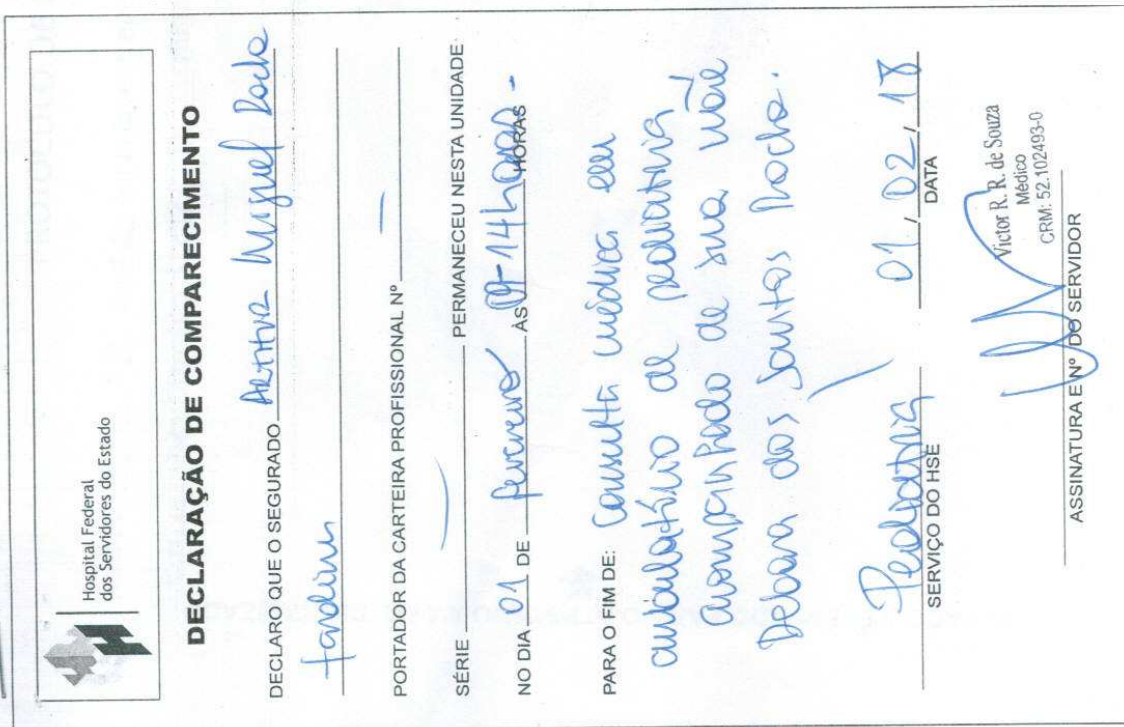 Hospital Federal
dos Servidores do Estado
DECLARAÇÃO DE COMPARECIMENTO
DECLARO QUE O SEGURADO Arthur Miguel Rocha
Jardim
PORTADOR DA CARTEIRA PROFISSIONAL Nº —
SÉRIE — PERMANECEU NESTA UNIDADE
NO DIA 01 DE fevereiro ÀS 09-14h HORAS -
PARA O FIM DE: Consulta médica em
ambulatório de pediatria
acompanhado de sua mãe
Debora dos Santos Rocha.
Pediatria 01 / 02 / 18
SERVIÇO DO HSE DATA
Victor R. R. de Souza
Médico
CRM: 52.102493-0
ASSINATURA E Nº DO SERVIDOR